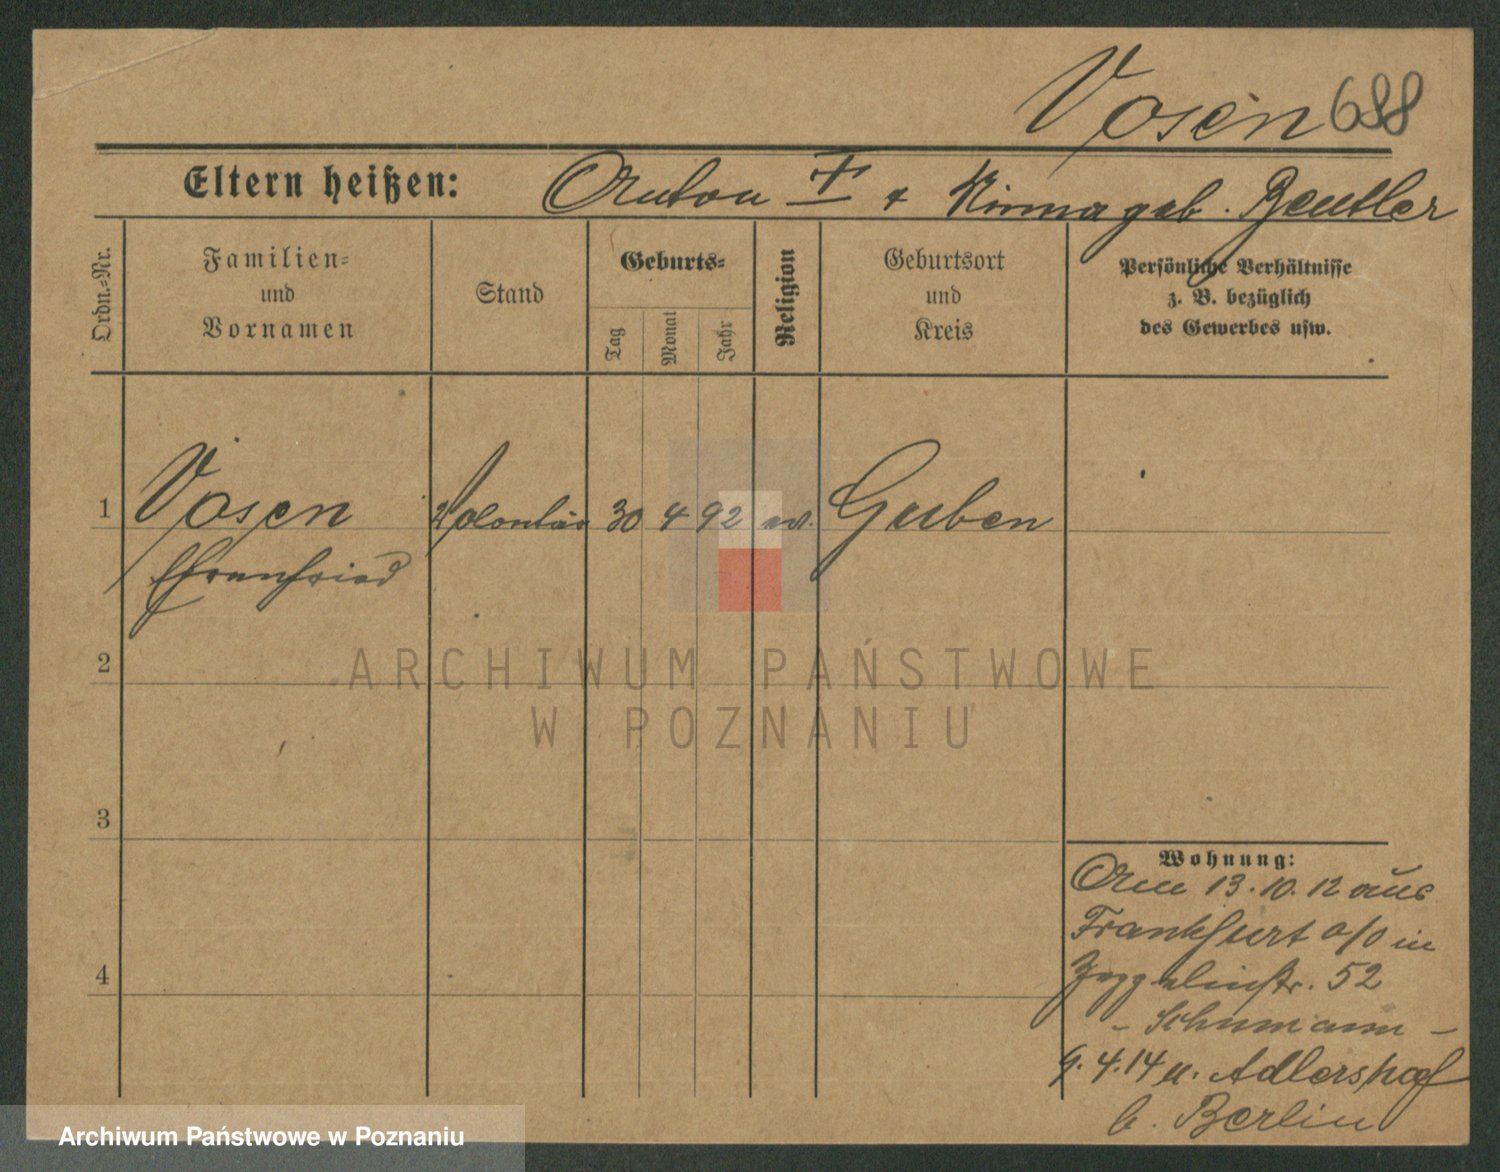 Vosen 688
Eltern heißen: Anton † & Minna geb. Beutler
Ordn.=Nr.
Familien=
und
Vornamen
Stand
Geburts=
Tag
Monat
Jahr
Religion
Geburtsort
und
Kreis
Persönliche Verhältnisse
z. B. bezüglich
des Gewerbes usw.
1 Vosen Volontär 30 4 92 ev. Guben
Ehrenfried
2
3
4
Wohnung:
Am 13.10.12 aus
Frankfurt a/O in
Zeppelinstr. 52
- Schumann -
9.4.14 n. Adlershof
b. Berlin
ARCHIWUM PAŃSTWOWE
W POZNANIU
Archiwum Państwowe w Poznaniu